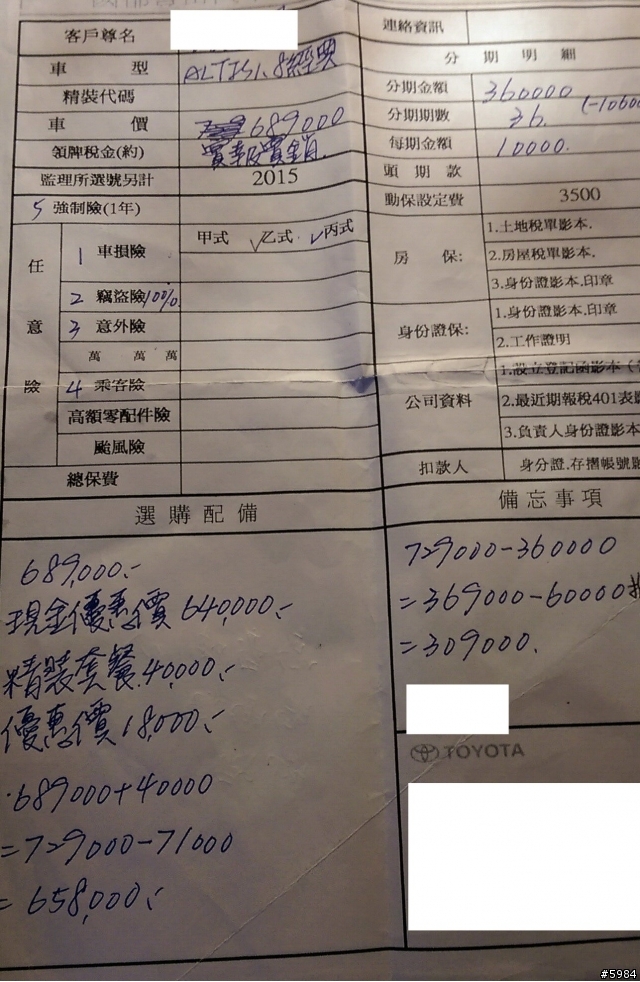 客戶尊名
連絡資訊
車型 ALTIS1.8經典
分期明細
精裝代碼
分期金額 360000
車價 689000
分期期數 36.
領牌稅金(約) 實報實銷.
每期金額 10000.
監理所選號另計 2015
頭期款
5 強制險(1年)
動保設定費 3500
任意險
1 車損險 甲式 √乙式 √丙式
2 竊盜險10%
3 意外險
萬 萬 萬
4 乘客險
高額零配件險
颱風險
總保費
房保:
1.土地稅單影本.
2.房屋稅單影本.
3.身份證影本.印章
身份證保:
1.身份證影本.印章
2.工作證明
公司資料
1.設立登記函影本
2.最近期報稅401表影
3.負責人身份證影本
扣款人 身分證.存摺帳號影
選購配備
備忘事項
689,000.-
現金優惠價 640,000.-
精裝套餐 40,000.-
優惠價 18,000.-
·689000+40000
=729000-71000
=658,000.-
729000-360000
=369000-60000
=309000.
TOYOTA
#5984